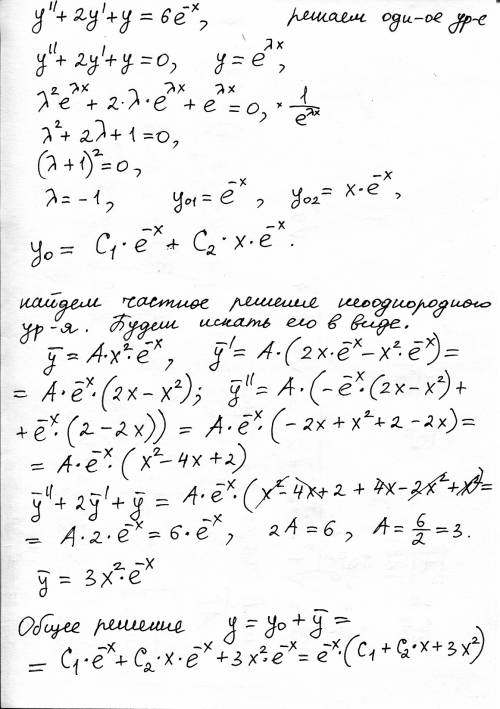 y'' + 2y' + y = 6e^{-x}, решаем одн-ое ур-е
y'' + 2y' + y = 0, y = e^{λx},
λ²e^{λx} + 2·λ·e^{λx} + e^{λx} = 0, × 1/e^{λx}
λ² + 2λ + 1 = 0,
(λ+1)² = 0,
λ = -1, y₀₁ = e^{-x}, y₀₂ = x·e^{-x},
y₀ = C₁·e^{-x} + C₂·x·e^{-x}.
найдем частное решение неоднородного
ур-я. Будем искать его в виде.
ȳ = A·x²·e^{-x}, ȳ' = A·(2x·e^{-x} - x²·e^{-x}) =
= A·e^{-x}·(2x - x²); ȳ'' = A·(-e^{-x}·(2x - x²) +
+ e^{-x}·(2 - 2x)) = A·e^{-x}·(-2x + x² + 2 - 2x) =
= A·e^{-x}·(x² - 4x + 2)
ȳ'' + 2ȳ' + ȳ = A·e^{-x}·(x² - 4x + 2 + 4x - 2x² + x²) =
= A·2·e^{-x} = 6·e^{-x}, 2A = 6, A = 6/2 = 3.
ȳ = 3x²·e^{-x}
Общее решение y = y₀ + ȳ =
= C₁·e^{-x} + C₂·x·e^{-x} + 3x²·e^{-x} = e^{-x}·(C₁ + C₂·x + 3x²)